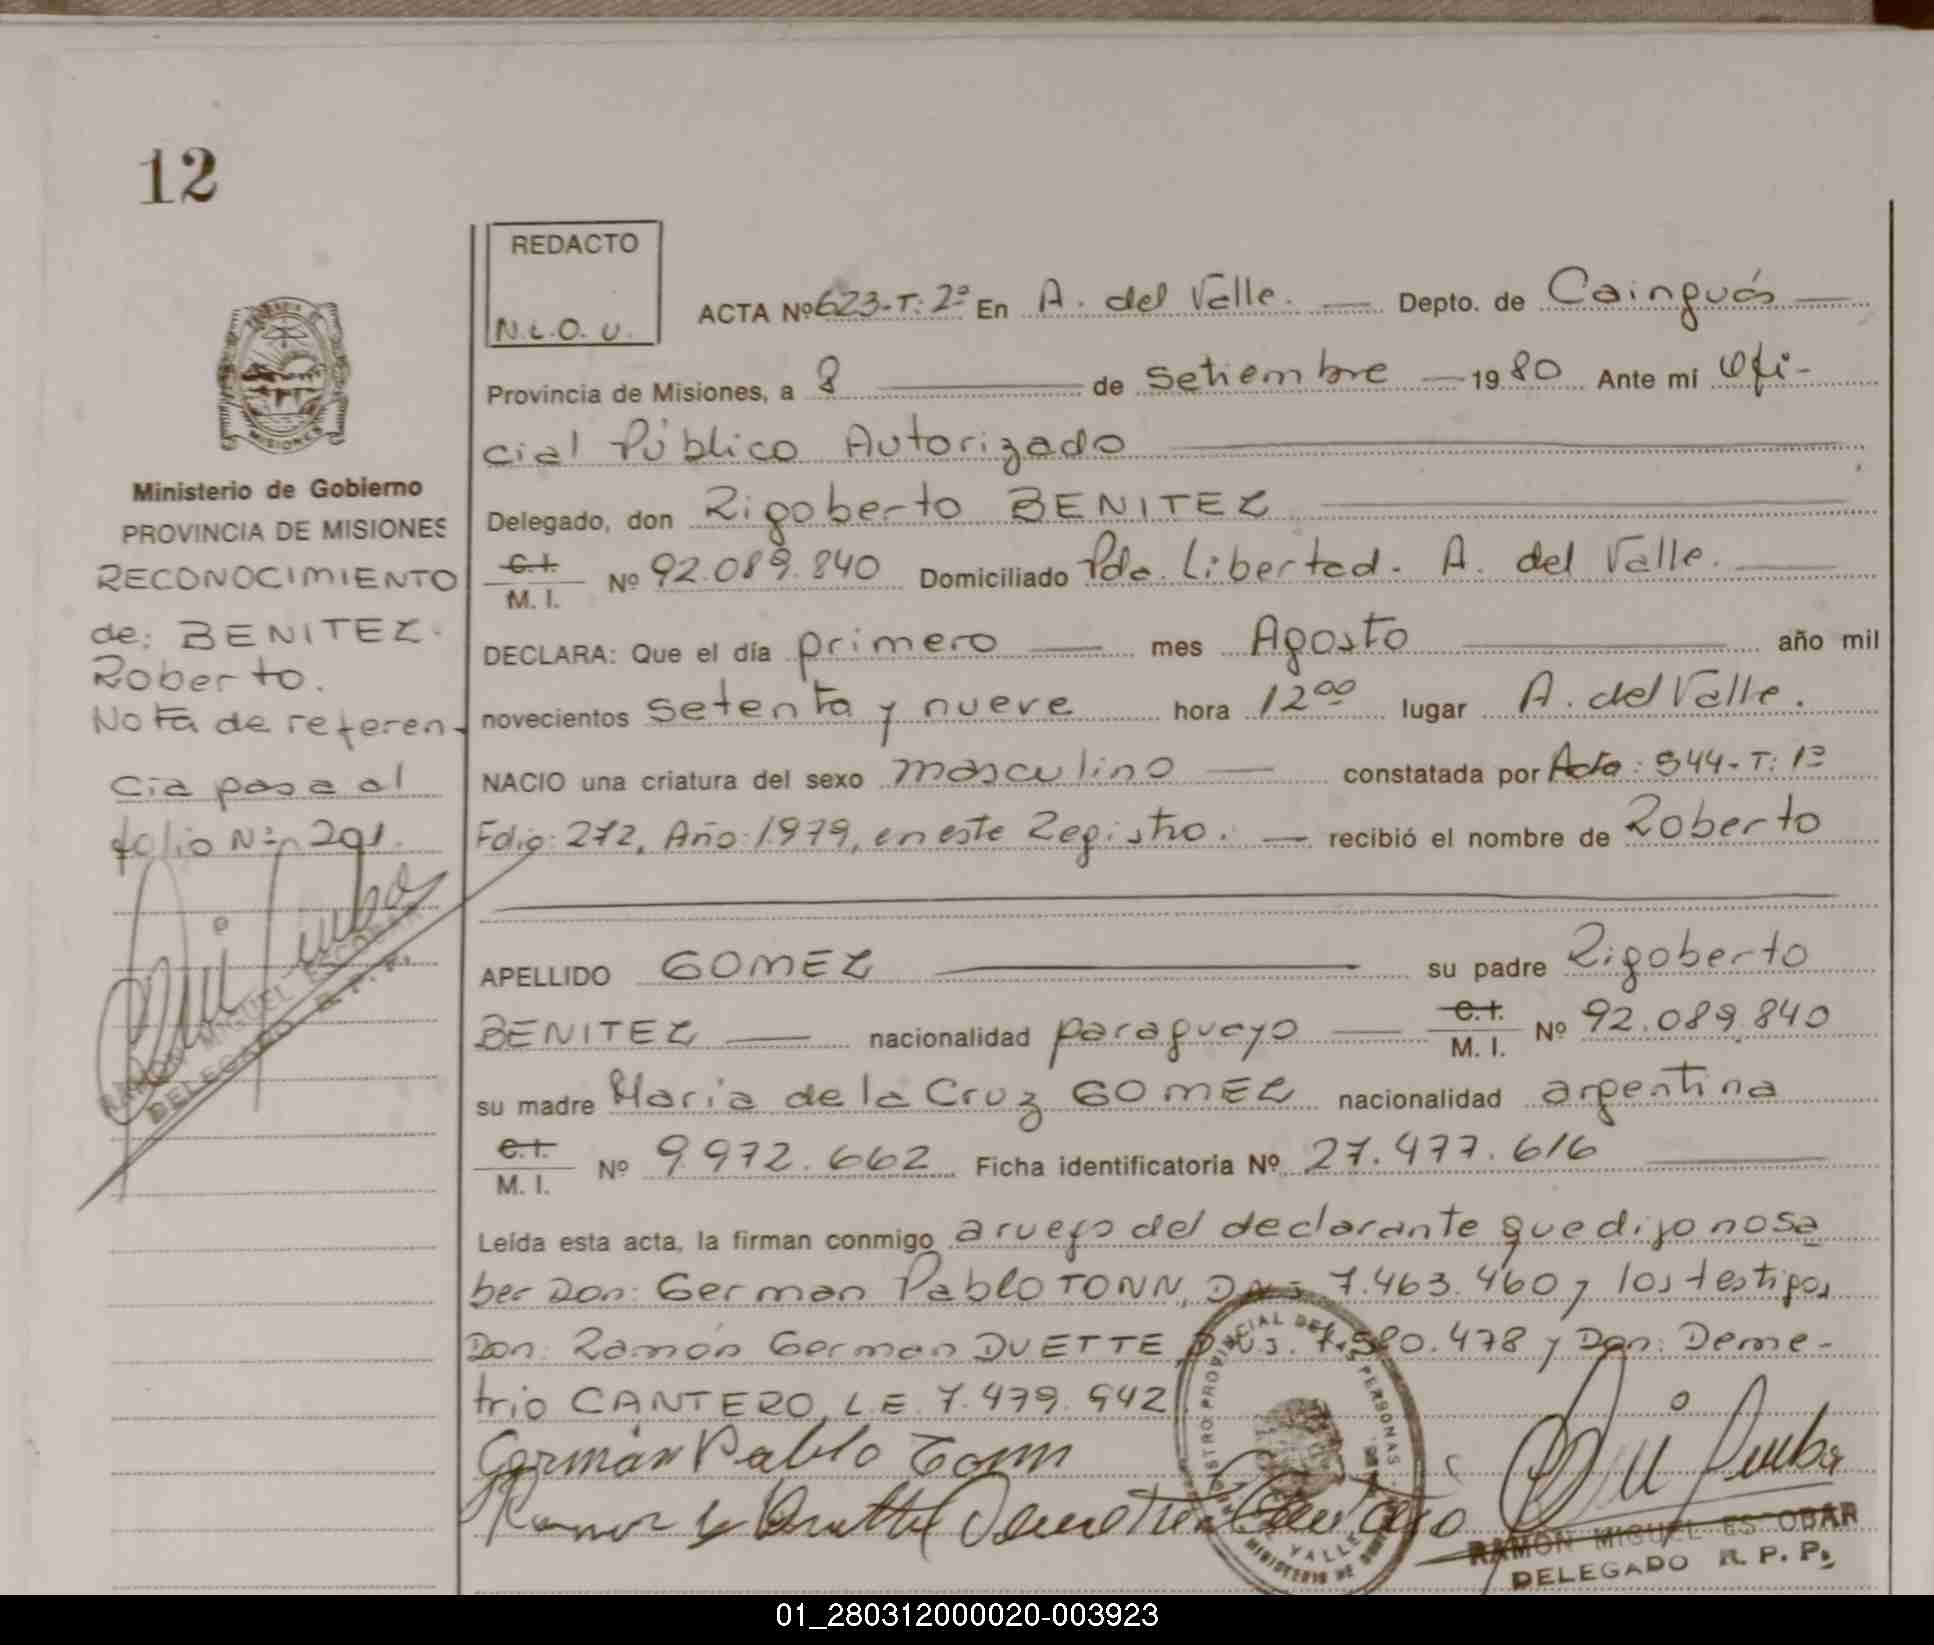 12
REDACTO
N.L.O.U.
ACTA Nº 623-T: 2º En A. del Valle. Depto. de Cainguás
Provincia de Misiones, a 8 de Setiembre 1980 Ante mí Ofi-
cial Público Autorizado
Delegado, don Rigoberto BENITEZ
C.I. M. I. Nº 92.089.840 Domiciliado Pdo. Libertad. A. del Valle.
DECLARA: Que el día primero mes Agosto año mil
novecientos setenta y nueve hora 12⁰⁰ lugar A. del Valle.
NACIO una criatura del sexo masculino constatada por Acta: 544-T: 1º
Folio: 272, Año: 1979, en este Registro. recibió el nombre de Roberto
APELLIDO GOMEZ su padre Rigoberto
BENITEZ nacionalidad paraguayo C.I. M. I. Nº 92.089.840
su madre Maria de la Cruz GOMEZ nacionalidad argentina
C.I. M. I. Nº 9.972.662 Ficha identificatoria Nº 27.477.616
Leída esta acta, la firman conmigo a ruego del declarante que dijo no sa
ber Don: German Pablo TONN, 7.463.460 y los testigos
Don: Ramón German DUETTE, 7.580.478 y Don: Deme-
trio CANTERO, L.E. 7.479.942
Germán Pablo Tonn
RAMON MIGUEL ESCOBAR
DELEGADO R. P. P.
MISIONES
Ministerio de Gobierno
PROVINCIA DE MISIONES
RECONOCIMIENTO
de: BENITEZ.
Roberto.
Nota de referen-
cia pasa al
folio Nº 291.
RAMON MIGUEL ESCOBAR
DELEGADO R. P. P.
01_280312000020-003923